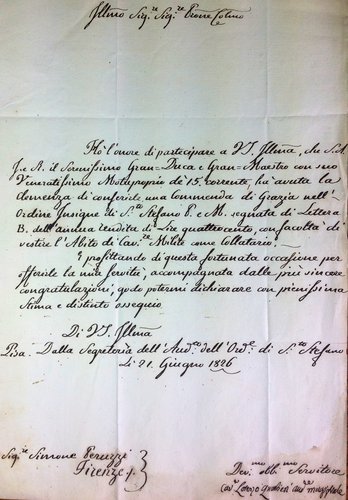 Illmo Sig.re Sig.re Prone Colmo
Ho l'onore di partecipare a VS. Illma, che S.A.
I. e R. il Serenissimo Gran=Duca e Gran=Maestro con suo
Veneratissimo Motuproprio de' 15. corrente, ha avuta la
clemenza di conferirle una Commenda di Grazia nell'
Ordine Insigne di S.to Stefano P. e M. segnata di Lettera
B. dell'annua rendita di Lire quattrocento, con facoltà di
vestire l'Abito di Cav.re Milite come Collatario.
E profittando di questa fortunata occasione per
offerirle la mia servitù, accompagnata dalle più sincere
congratulazioni, godo potermi dichiarare con pienissima
stima e distinto ossequio
Di VS. Illma
Pisa. Dalla Segreteria dell'Aud.re dell'Ord.e di S.to Stefano
Li 21. Giugno 1826
Sig.re Simone Peruzzi
Firenze
Dev.mo obb.mo Servitore
Cav.